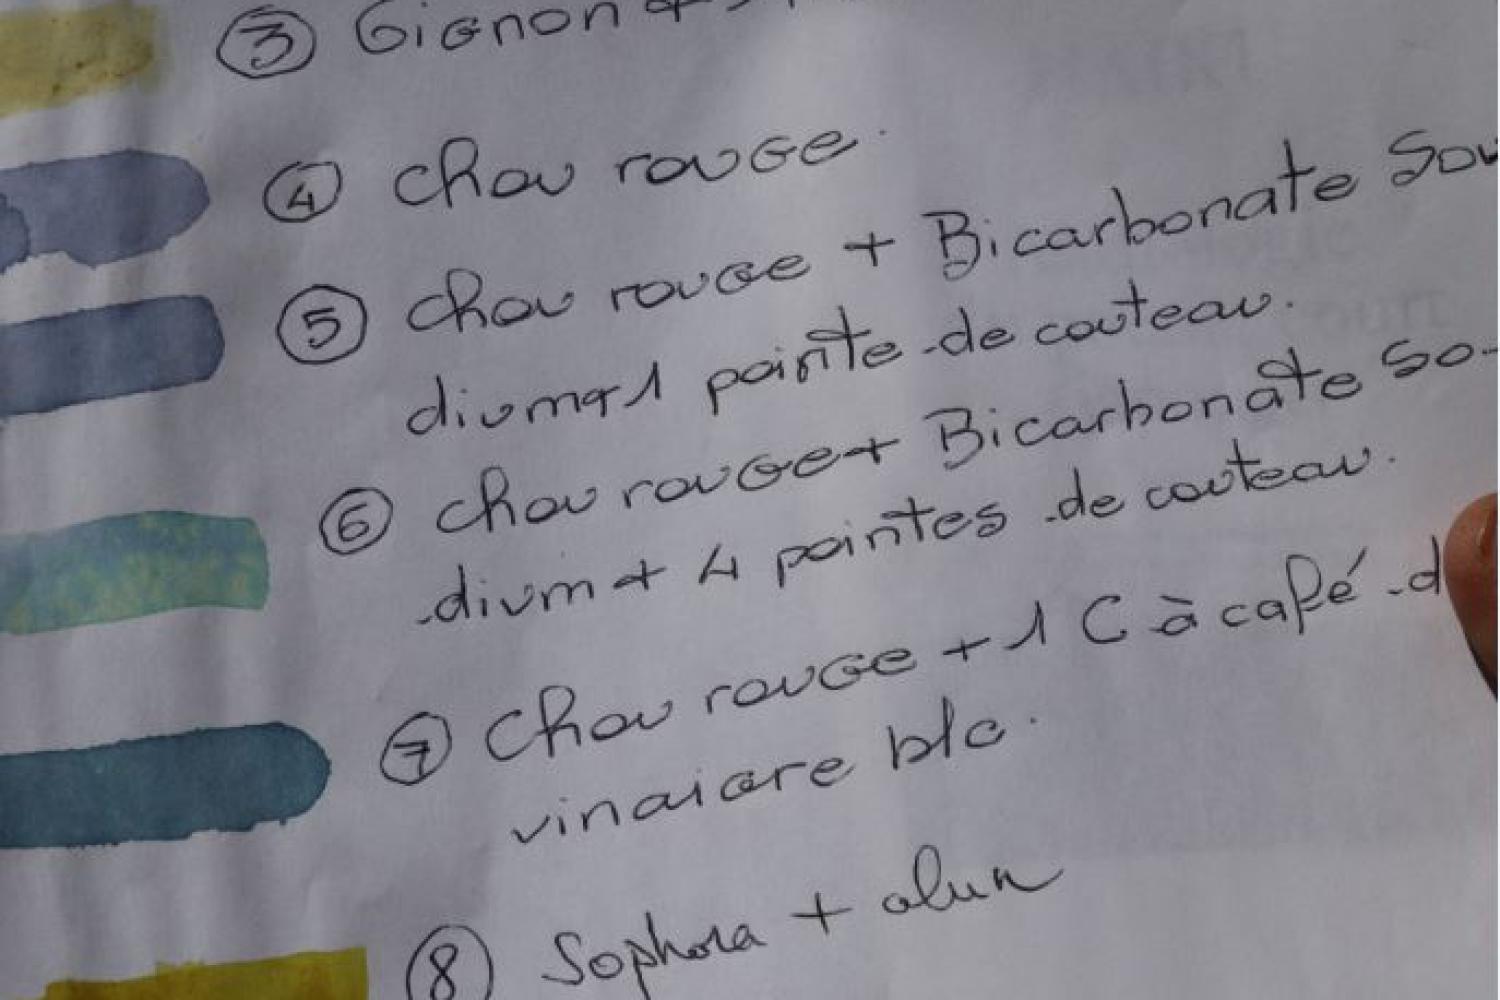 ③ Oignon +
④ chou rouge.
⑤ chou rouge + Bicarbonate Sou
dium+1 pointe de couteau.
⑥ chou rouge + Bicarbonate So-
dium + 4 pointes de couteau.
⑦ Chou rouge + 1 C à café d
vinaigre blc.
⑧ Sophora + alun